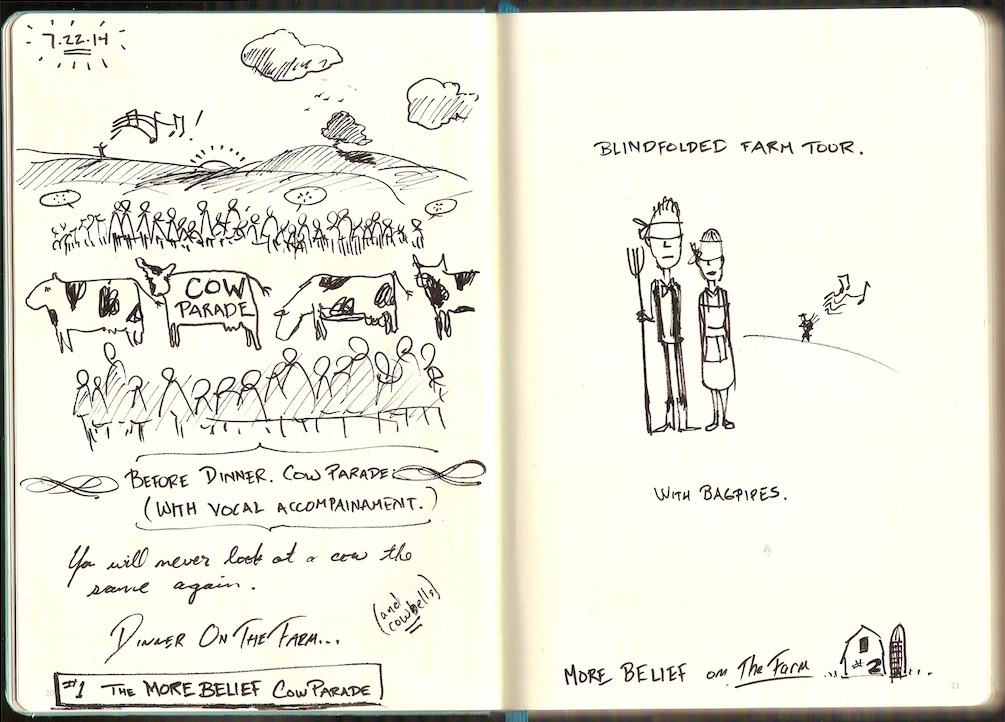 7.22.14
COW
PARADE
BEFORE DINNER. COW PARADE.
(WITH VOCAL ACCOMPAINAMENT.)
You will never look at a cow the
same again.
(and
cowbells)
DINNER ON THE FARM...
#1 THE MORE BELIEF COW PARADE
20
BLINDFOLDED FARM TOUR.
WITH BAGPIPES.
MORE BELIEF on The Farm #2 ...
21